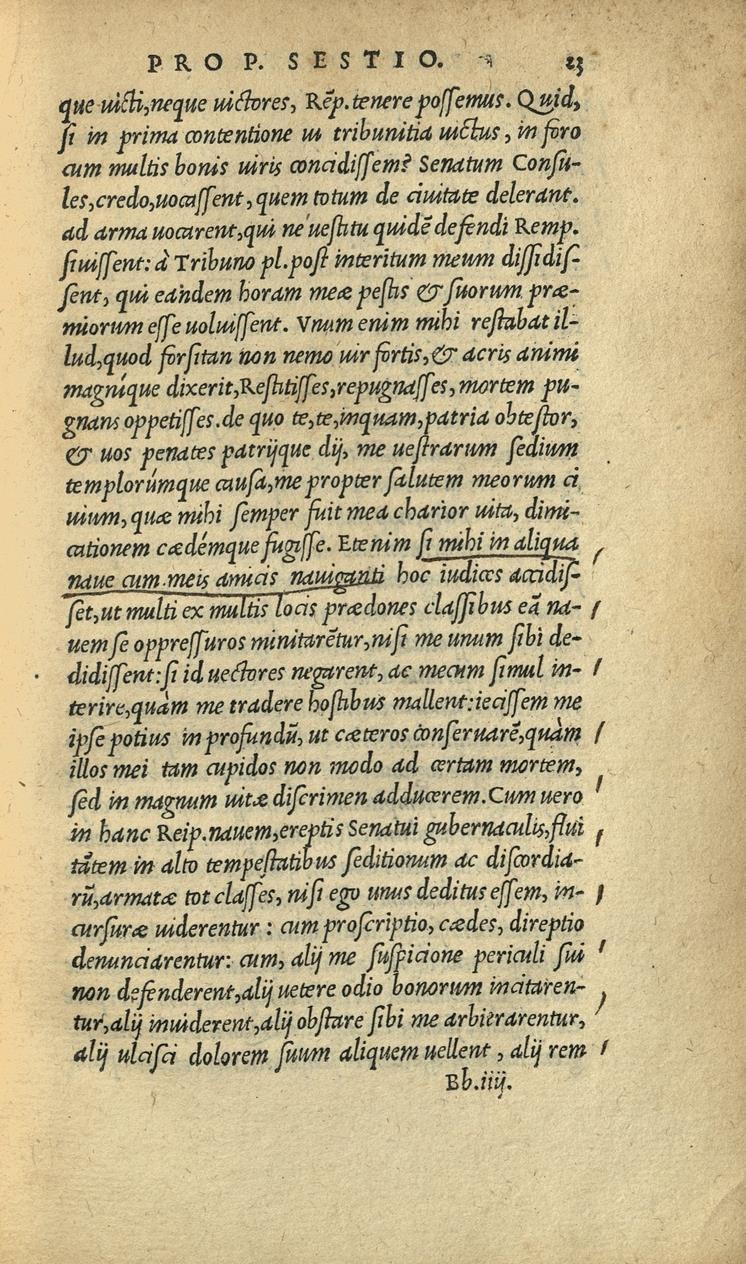 PRO P. SESTIO. 23
que uicti, neque uictores, Rēp. tenere possemus. Quid,
si in prima contentione ui tribunitia uictus, in foro
cum multis bonis uiris concidissem? Senatum Consu-
les, credo, uocassent, quem totum de ciuitate delerant.
ad arma uocarent, qui ne uestitu quidē defendi Remp.
siuissent: à Tribuno pl. post interitum meum dissidis-
sent, qui eandem horam meæ pestis & suorum præ-
miorum esse uoluissent. Vnum enim mihi restabat il-
lud, quod forsitan non nemo uir fortis, & acris animi
magníque dixerit, Restitisses, repugnasses, mortem pu-
gnans oppetisses. de quo te, te, inquam, patria obtestor,
& uos penates patrijque dij, me uestrarum sedium
templorúmque causa, me propter salutem meorum ci
uium, quæ mihi semper fuit mea charior uita, dimi-
cationem cædémque fugisse. Etenim si mihi in aliqua
naue cum meis amicis nauiganti hoc iudices accidis-
set, ut multi ex multis locis prædones classibus eā na-
uem se oppressuros minitarētur, nisi me unum sibi de-
didissent: si id uectores negarent, ac mecum simul in-
terire, quàm me tradere hostibus mallent: iecissem me
ipse potius in profundū, ut cæteros conseruarē, quàm
illos mei tam cupidos non modo ad certam mortem,
sed in magnum uitæ discrimen adducerem. Cum uero
in hanc Reip. nauem, ereptis Senatui gubernaculis, flui
tātem in alto tempestatibus seditionum ac discordia-
rū, armatæ tot classes, nisi ego unus deditus essem, in-
cursuræ uiderentur: cum proscriptio, cædes, direptio
denunciarentur: cum, alij me suspicione periculi sui
non defenderent, alij uetere odio bonorum incitaren-
tur, alij inuiderent, alij obstare sibi me arbitrarentur,
alij ulcisci dolorem suum aliquem uellent, alij rem
Bb.iiij.